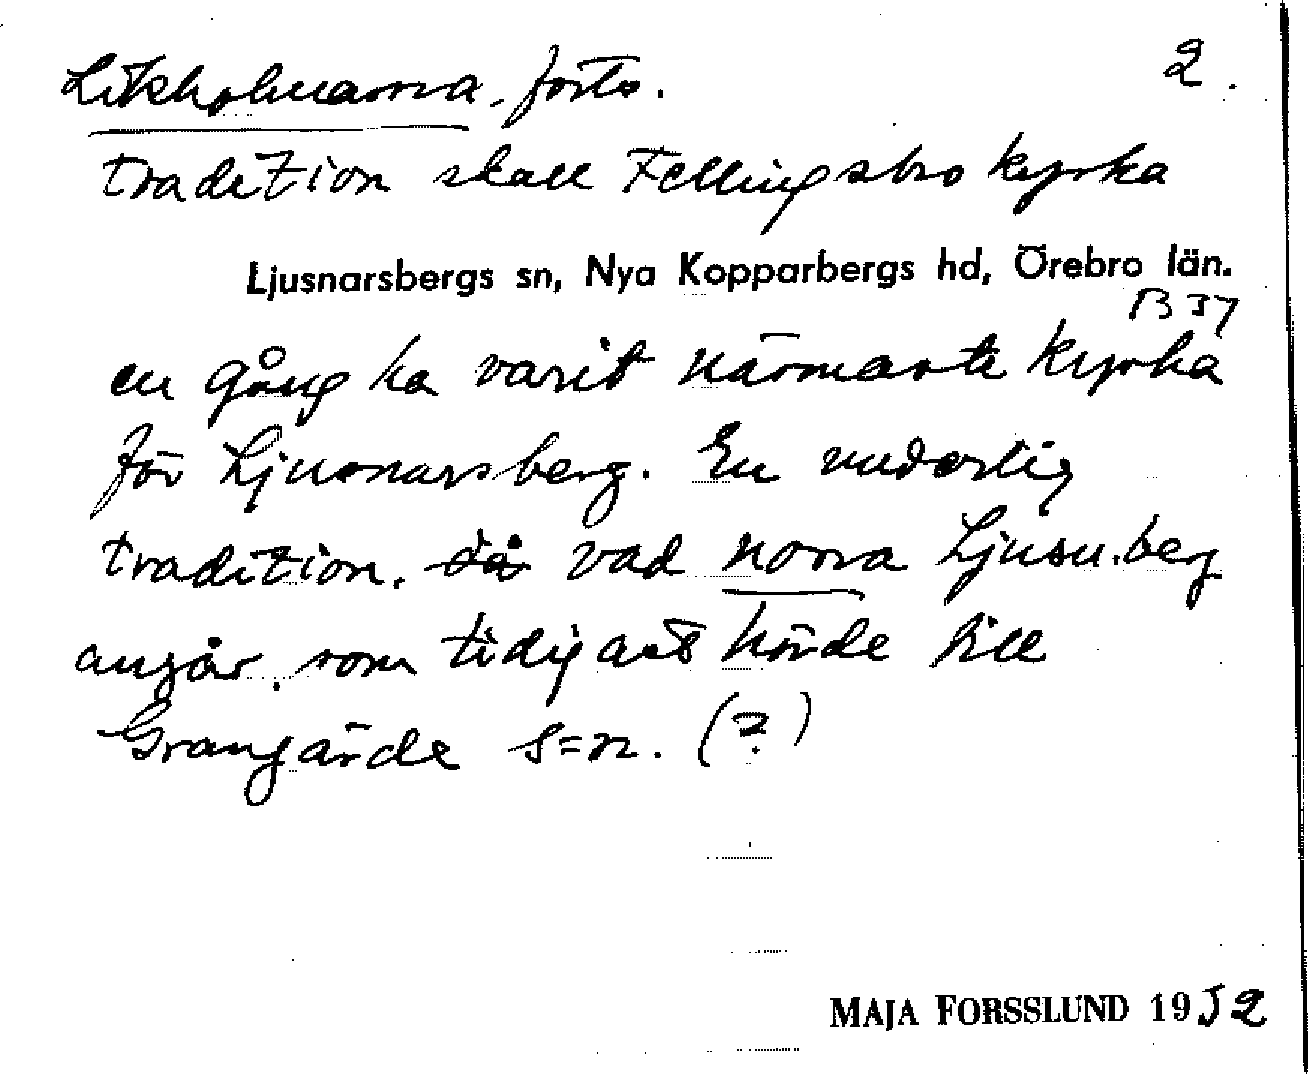 Likholmarna, forts. 2.
tradition skall Fellingsbro kyrka
Ljusnarsbergs sn, Nya Kopparbergs hd, Örebro län.
B 37
en gång ha varit närmaste kyrka
för Ljusnarsberg. En underlig
tradition. då vad norra Ljusn.berg
angår, som tidigast hörde till
Grangärde s=n. (?)
MAJA FORSSLUND 1952